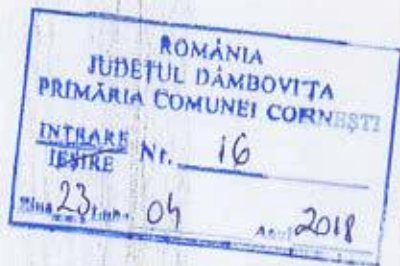 ROMÂNIA
JUDEȚUL DÂMBOVIȚA
PRIMĂRIA COMUNEI CORNEȘTI
INTRARE
IEȘIRE Nr. 16
Ziua 23 Luna 04 Anul 2018